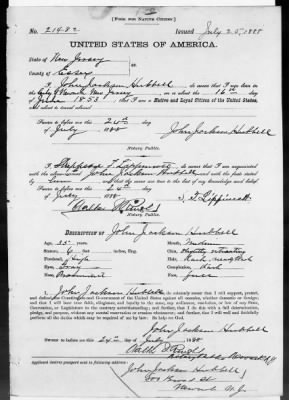 [FORM FOR NATIVE CITIZEN.]
No. 21982 Issued July 25, 1888
UNITED STATES OF AMERICA.
State of New Jersey
County of Essex
I, John Jackson Hubbell, do swear that I was born in
the City of Newark New Jersey, on or about the 16th day
of June 1853, that I am a Native and Loyal Citizen of the United States,
and about to travel abroad
Sworn to before me this 24th day
of July 1888
John Jackson Hubbell
Notary Public.
I, Lippincott, do swear that I am acquainted
with the John Jackson Hubbell and with the facts stated
by him and that the same are true to the best of my knowledge and belief
Sworn to before me this 24th day
of July 1888
Notary Public.
S. Lippincott
DESCRIPTION OF John Jackson Hubbell
Age, 35 years. Mouth, Medium
Stature, 6 feet inches, Eng. Chin,
Forehead, High Hair,
Eyes, Gray Complexion, Dark
Nose, Face,
I, John Jackson Hubbell, do solemnly swear that I will support, protect,
and defend the Constitution and Government of the United States against all enemies, whether domestic or foreign;
and that I will bear true faith, allegiance, and loyalty to the same, any ordinance, resolution, or law of any State,
Convention, or Legislature to the contrary notwithstanding; and further, that I do this with a full determination,
pledge, and purpose, without any mental reservation or evasion whatsoever; and further, that I will well and faithfully
perform all the duties which may be required of me by law: So help me God.
John Jackson Hubbell
Sworn to before me this 24th July 1888
Applicant desires passport sent to following address:
John Jackson Hubbell
Broad St
Newark N.J.